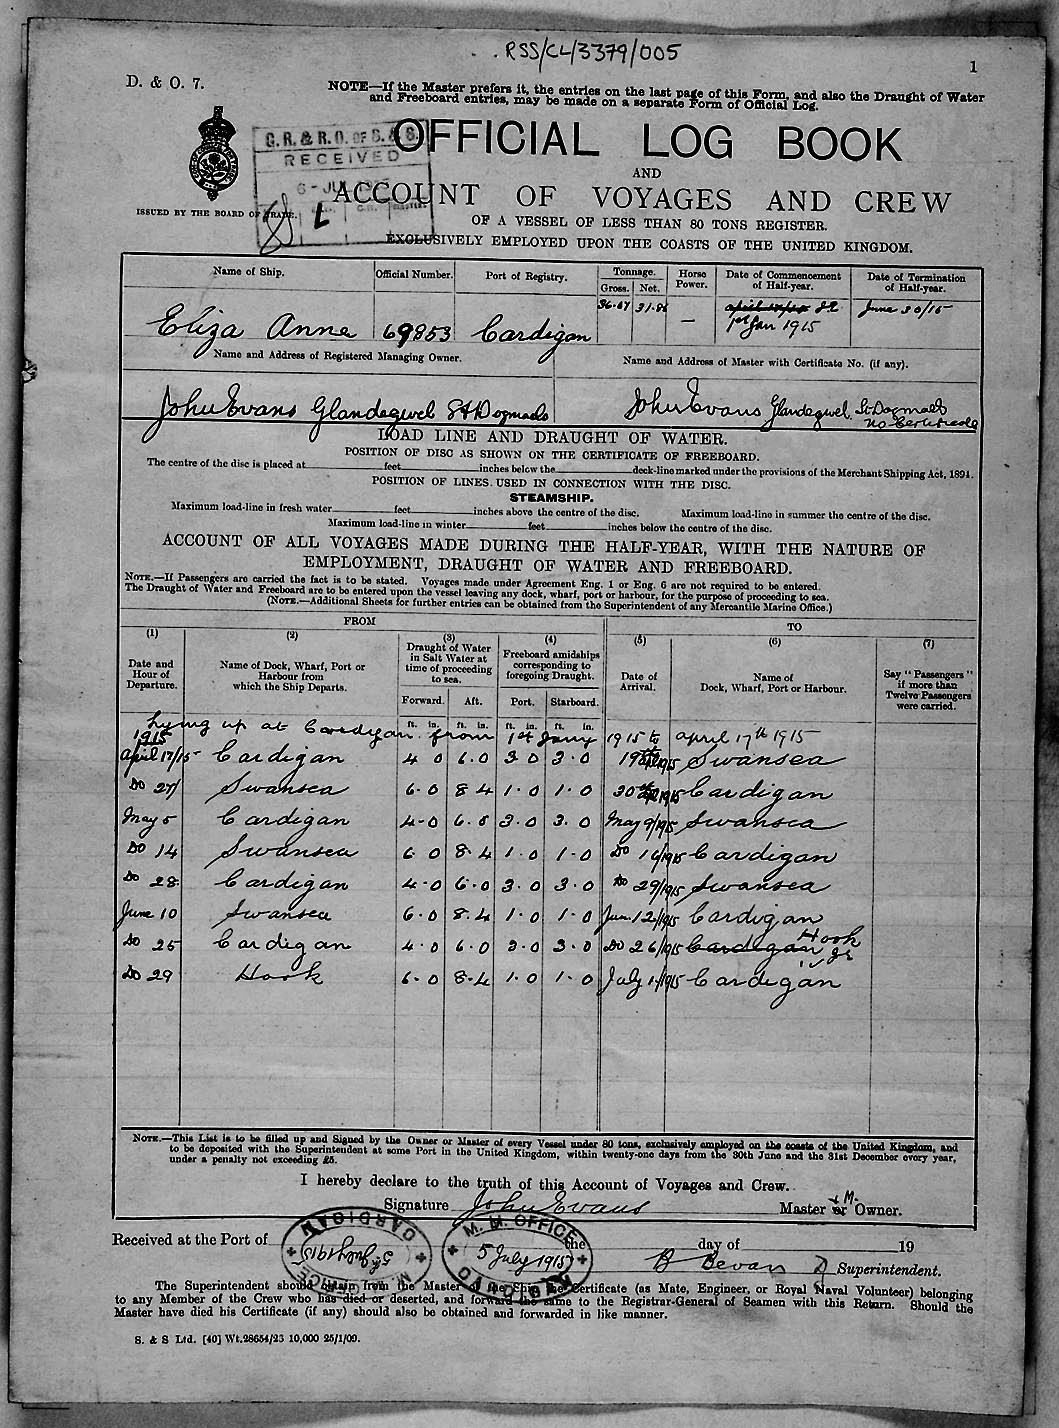 RSS/CL/3379/005
1
D. & O. 7.
NOTE—If the Master prefers it, the entries on the last page of this Form, and also the Draught of Water
and Freeboard entries, may be made on a separate Form of Official Log.
G.R. & R.O. OF S. & S.
RECEIVED
6 - JUL
L
OFFICIAL LOG BOOK
AND
ACCOUNT OF VOYAGES AND CREW
ISSUED BY THE BOARD OF TRADE.
OF A VESSEL OF LESS THAN 80 TONS REGISTER.
EXCLUSIVELY EMPLOYED UPON THE COASTS OF THE UNITED KINGDOM.
Name of Ship. Official Number. Port of Registry. Tonnage. Gross. Net. Horse Power. Date of Commencement of Half-year. Date of Termination of Half-year.
Eliza Anne 69853 Cardigan 36.67 31.86 — 1st Jan 1915 June 30/15
Name and Address of Registered Managing Owner. Name and Address of Master with Certificate No. (if any).
John Evans Glandegwel St Dogmaels John Evans Glandegwel, St. Dogmaels
No Certificate
LOAD LINE AND DRAUGHT OF WATER.
POSITION OF DISC AS SHOWN ON THE CERTIFICATE OF FREEBOARD.
The centre of the disc is placed at feet inches below the deck-line marked under the provisions of the Merchant Shipping Act, 1894.
POSITION OF LINES USED IN CONNECTION WITH THE DISC.
STEAMSHIP.
Maximum load-line in fresh water feet inches above the centre of the disc. Maximum load-line in summer the centre of the disc.
Maximum load-line in winter feet inches below the centre of the disc.
ACCOUNT OF ALL VOYAGES MADE DURING THE HALF-YEAR, WITH THE NATURE OF
EMPLOYMENT, DRAUGHT OF WATER AND FREEBOARD.
NOTE.—If Passengers are carried the fact is to be stated. Voyages made under Agreement Eng. 1 or Eng. 6 are not required to be entered.
The Draught of Water and Freeboard are to be entered upon the vessel leaving any dock, wharf, port or harbour, for the purpose of proceeding to sea.
(NOTE.—Additional Sheets for further entries can be obtained from the Superintendent of any Mercantile Marine Office.)
FROM TO
(1) (2) (3) (4) (5) (6) (7)
Date and Hour of Departure. Name of Dock, Wharf, Port or Harbour from which the Ship Departs. Draught of Water in Salt Water at time of proceeding to sea. Freeboard amidships corresponding to foregoing Draught. Date of Arrival. Name of Dock, Wharf, Port or Harbour. Say "Passengers" if more than Twelve Passengers were carried.
Forward. Aft. Port. Starboard.
ft. in. ft. in. ft. in. ft. in.
Lying up at Cardigan from 1st Jany 1915 to April 17th 1915
1915
April 17/15 Cardigan 4 0 6.0 3 0 3.0 19th Apl 1915 Swansea
Do 27 Swansea 6.0 8 4 1.0 1.0 30th Apl 1915 Cardigan
May 5 Cardigan 4-0 6.0 3.0 3.0 May 9/1915 Swansea
Do 14 Swansea 6 0 8.4 1.0 1-0 Do 16/1915 Cardigan
Do 28 Cardigan 4-0 6.0 3.0 3.0 Do 29/1915 Swansea
June 10 Swansea 6.0 8.4 1.0 1.0 Jun. 12/1915 Cardigan
Do 25 Cardigan 4.0 6.0 3.0 3.0 Do 26/1915 Cardigan Hook
Do 29 Hook 6.0 8-4 1.0 1.0 July 1/1915 Cardigan
NOTE.—This List is to be filled up and Signed by the Owner or Master of every Vessel under 80 tons, exclusively employed on the coasts of the United Kingdom, and
to be deposited with the Superintendent at some Port in the United Kingdom, within twenty-one days from the 30th June and the 31st December every year,
under a penalty not exceeding £5.
I hereby declare to the truth of this Account of Voyages and Crew.
Signature John Evans Master or + M. Owner.
CARDIGAN
5th July 1915
M. M. OFFICE
5 July 1915
CARDIGAN
Received at the Port of the day of 19
B Bevan D Superintendent.
The Superintendent should obtain from the Master of the Ship the Certificate (as Mate, Engineer, or Royal Naval Volunteer) belonging
to any Member of the Crew who has died or deserted, and forward the same to the Registrar-General of Seamen with this Return. Should the
Master have died his Certificate (if any) should also be obtained and forwarded in like manner.
S. & S Ltd. [40] Wt.28654/23 10,000 25/1/09.